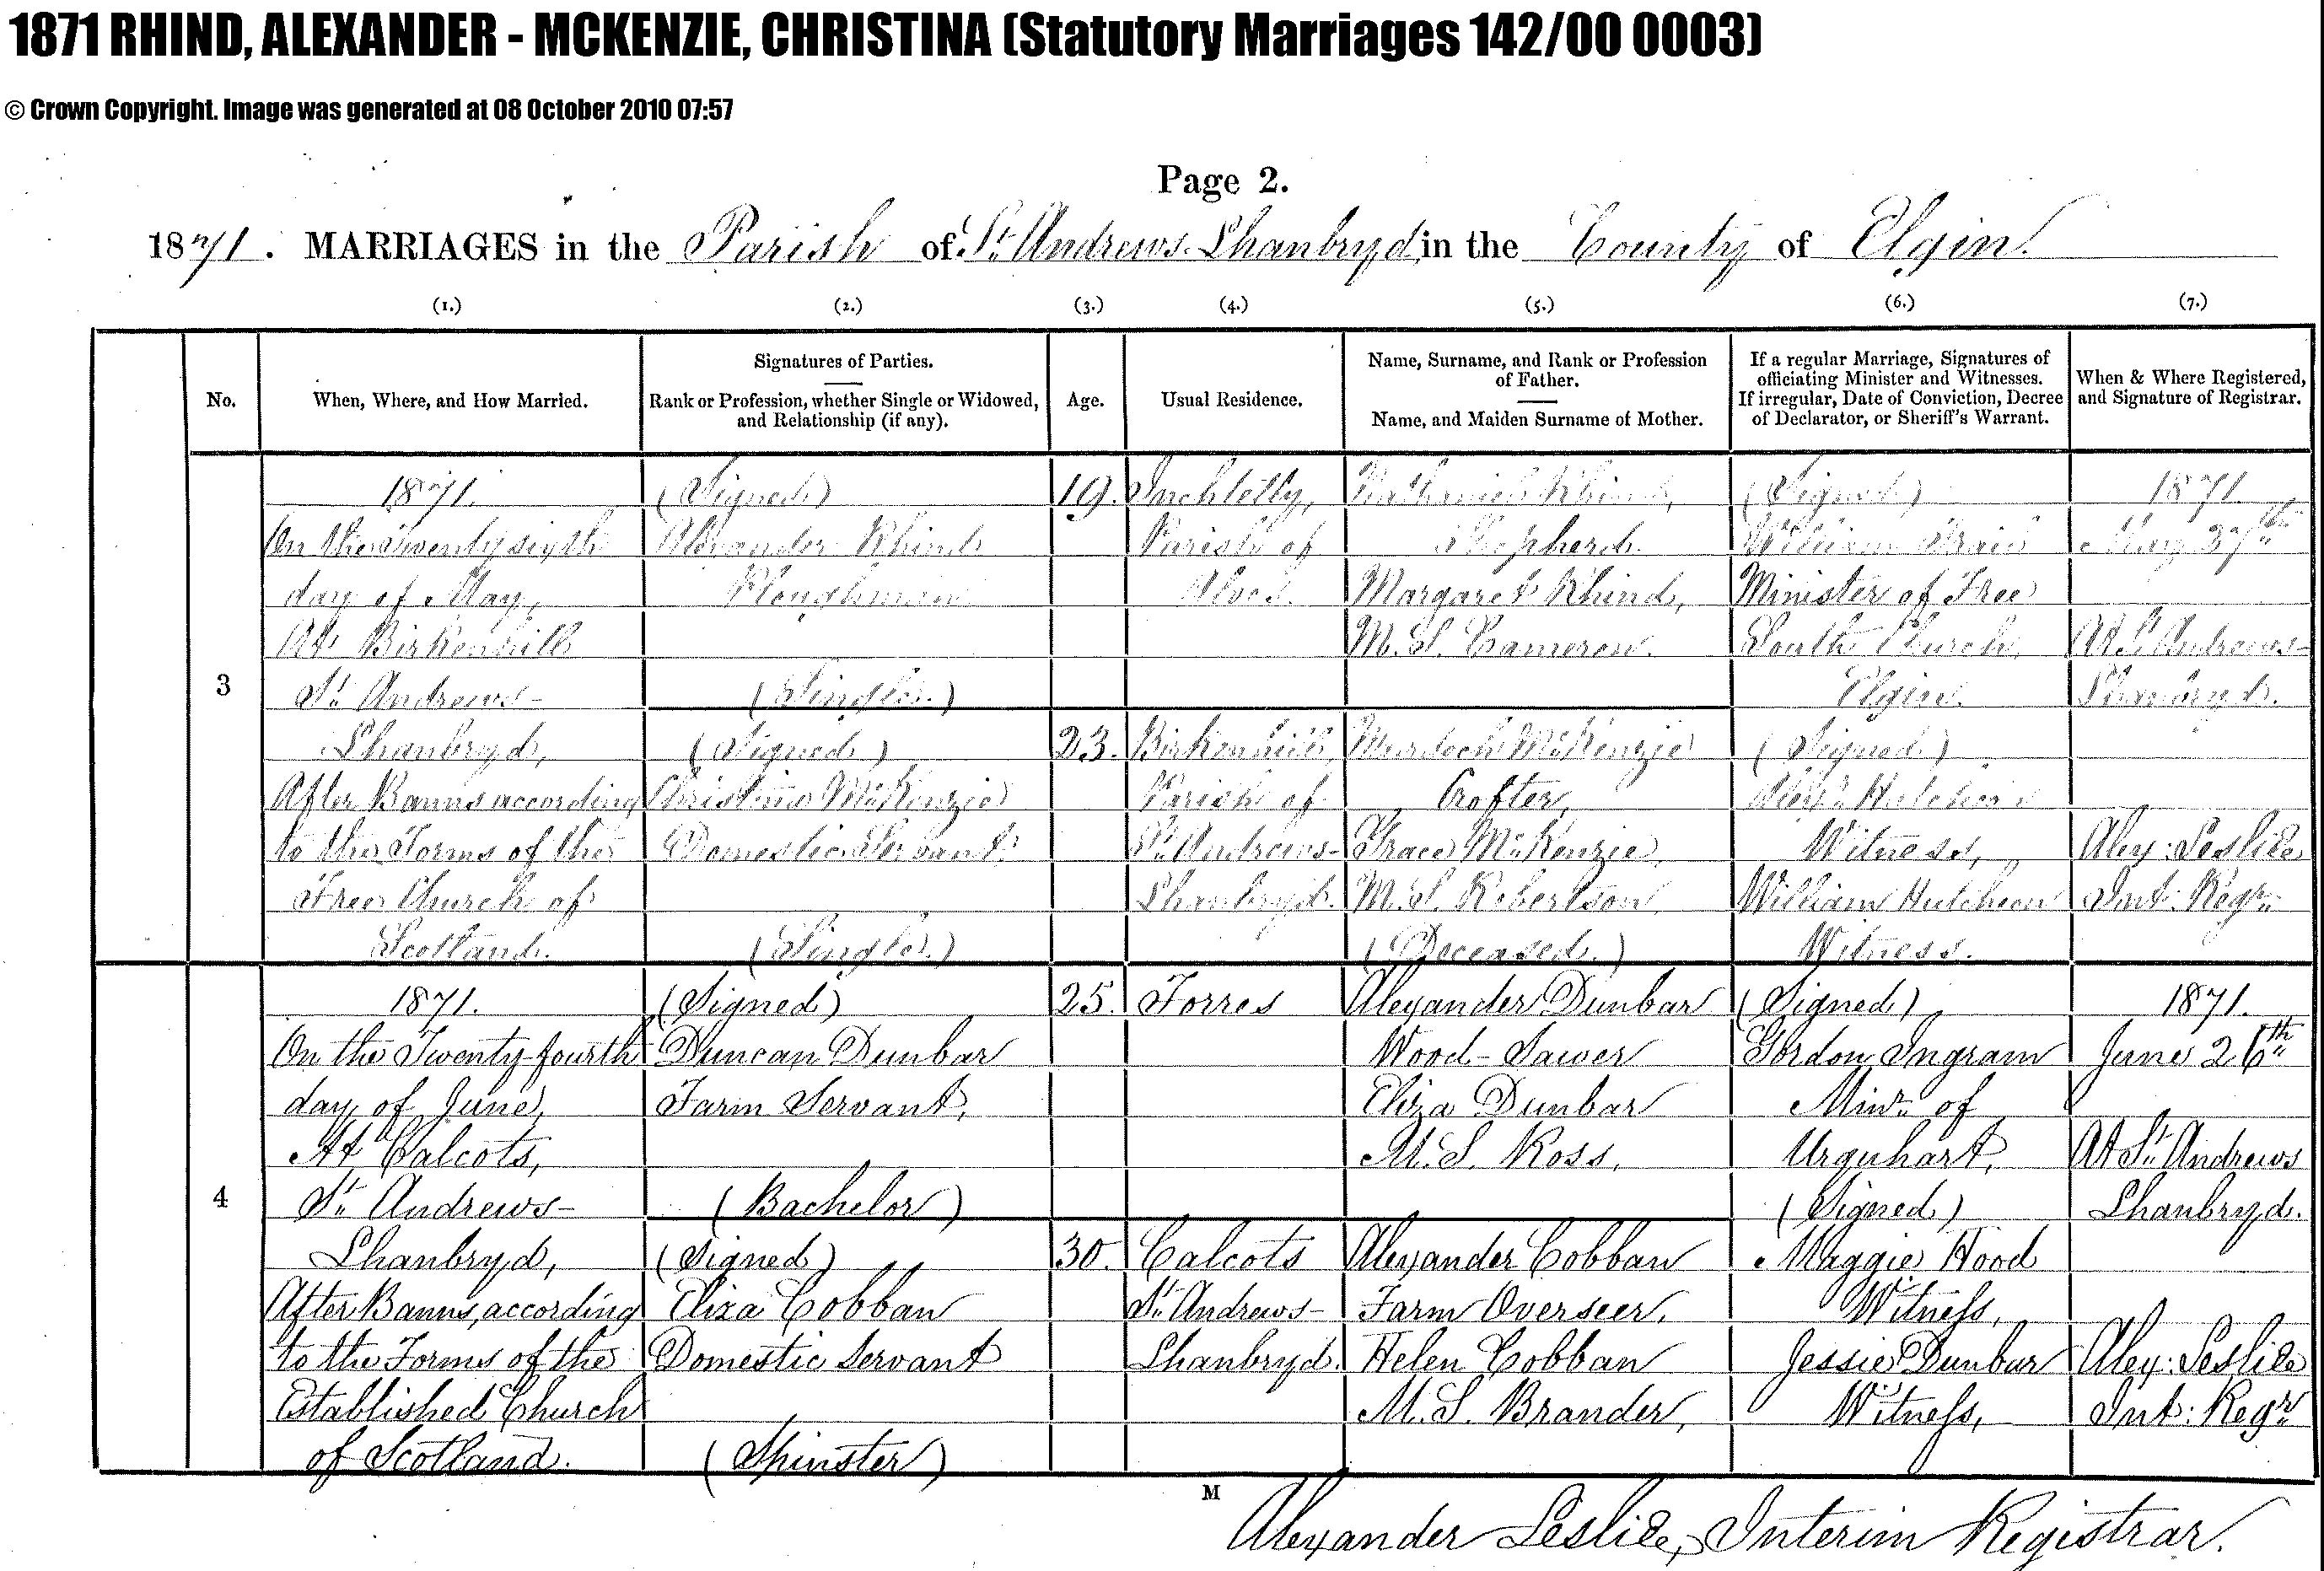 1871 RHIND, ALEXANDER - MCKENZIE, CHRISTINA (Statutory Marriages 142/00 0003)
© Crown Copyright. Image was generated at 08 October 2010 07:57
Page 2.
1871. MARRIAGES in the Parish of St Andrews-Lhanbryd in the County of Elgin.
(1.) (2.) (3.) (4.) (5.) (6.) (7.)
No.
When, Where, and How Married.
Signatures of Parties.
Rank or Profession, whether Single or Widowed,
and Relationship (if any).
Age.
Usual Residence.
Name, Surname, and Rank or Profession
of Father.
Name, and Maiden Surname of Mother.
If a regular Marriage, Signatures of
officiating Minister and Witnesses.
If irregular, Date of Conviction, Decree
of Declarator, or Sheriff's Warrant.
When & Where Registered,
and Signature of Registrar.
3
1871.
On the Twenty sixth
day of May,
At Birkenhill
St Andrews-
Lhanbryd,
After Banns according
to the Forms of the
Free Church of
Scotland.
(Signed)
Alexander Rhind
Ploughman
(Single.)
(Signed)
Christina McKenzie
Domestic Servant
(Single.)
19.
23.
Inchtelly,
Parish of
Alves.
Birkenhill,
Parish of
St Andrews-
Lhanbryd.
Nathaniel Rhind,
Shepherd.
Margaret Rhind,
M.S. Cameron.
Murdoch McKenzie
Crofter,
Grace McKenzie,
M.S. Robertson
(Deceased.)
(Signed)
William
Minister of Free
South Church,
Elgin.
(Signed)
Alexr Hutcheon
Witness,
William Hutcheon
Witness.
1871.
May 27th
At St Andrews-
Lhanbryd.
Alex: Leslie
Int: Regr
4
1871.
On the Twenty-fourth
day of June,
At Calcots,
St Andrews-
Lhanbryd,
After Banns, according
to the Forms of the
Established Church
of Scotland.
(Signed)
Duncan Dunbar
Farm Servant,
(Bachelor)
(Signed)
Eliza Cobban
Domestic Servant
(Spinster)
25.
30.
Forres
Calcots
St Andrews-
Lhanbryd.
Alexander Dunbar
Wood-Sawer
Eliza Dunbar
M.S. Ross,
Alexander Cobban
Farm Overseer,
Helen Cobban
M.S. Brander,
(Signed)
Gordon Ingram
Minr of
Urquhart,
(Signed)
Maggie Hood
Witness,
Jessie Dunbar
Witness,
1871.
June 26th
At St Andrews
Lhanbryd.
Alex: Leslie
Int: Regr
M
Alexander Leslie, Interim Registrar.